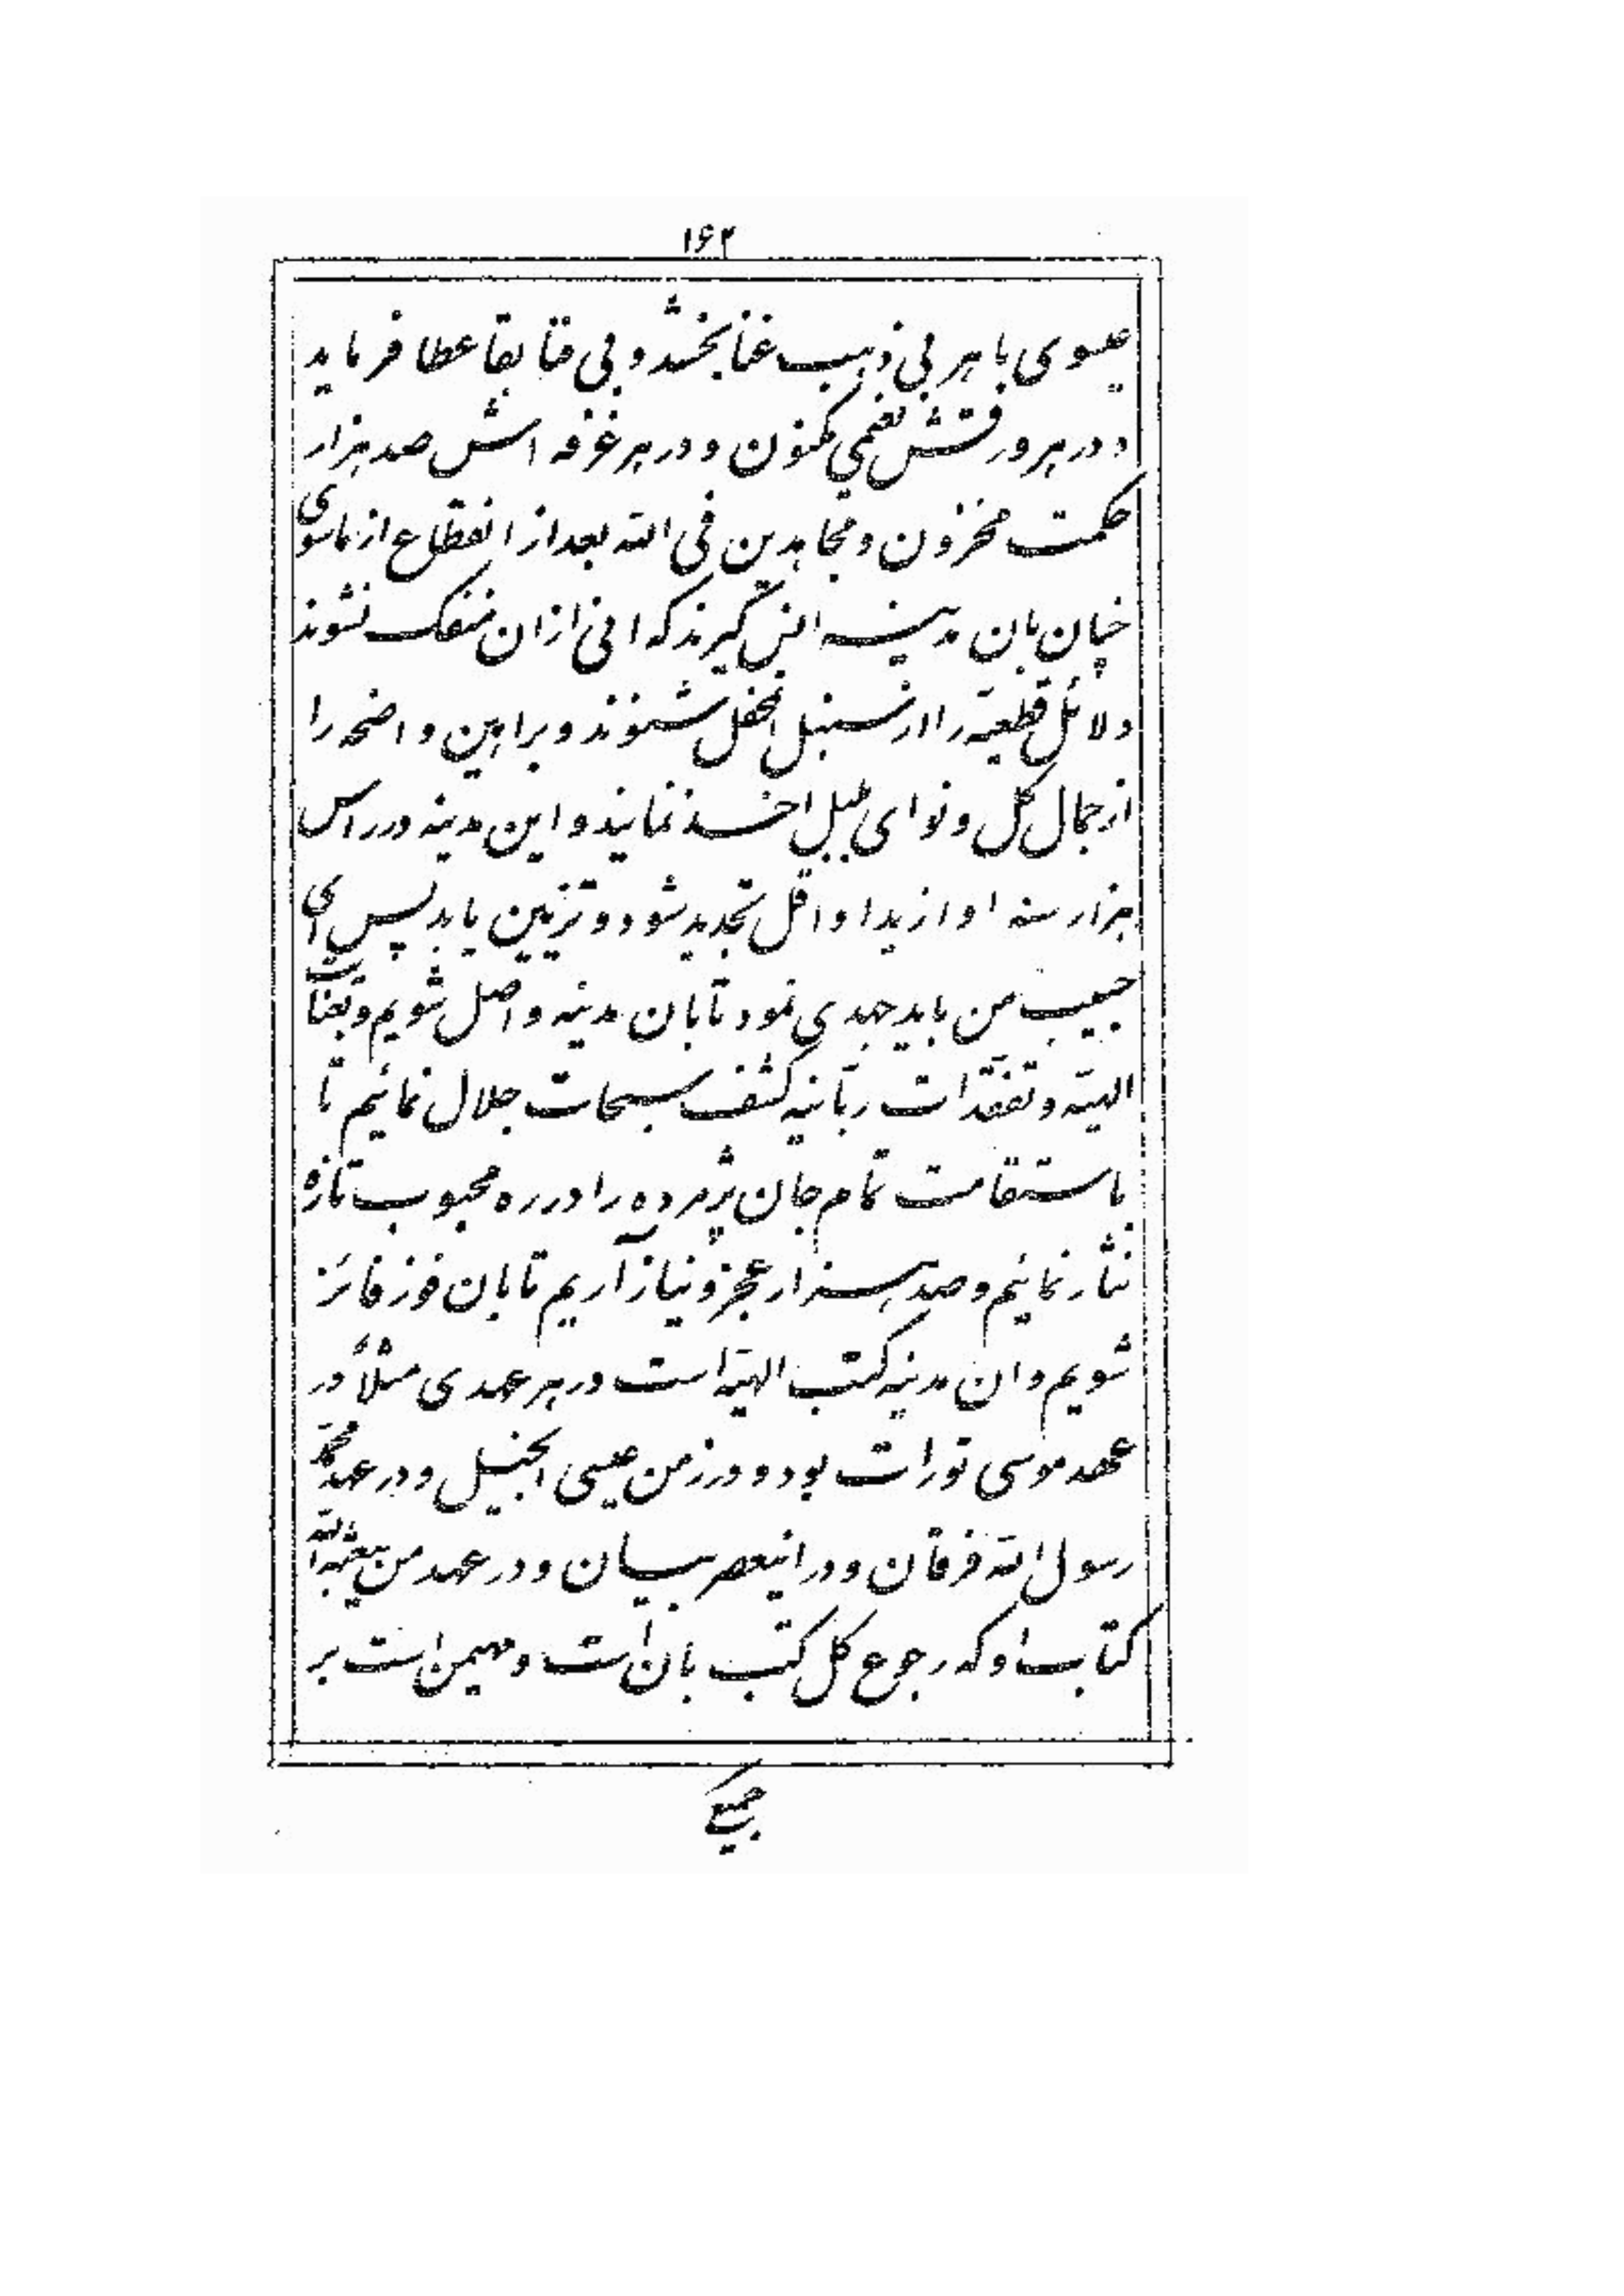 ۱۶۲
عیسوی باهر بی ذهب غنا بخشد و بی فنا بقا عطا فرماید
و در هر ورقش نعیمی مکنون و در هر غرفه اش صد هزار
حکمت مخزون و مجاهدین فی الله بعد از انقطاع از ماسوی
چنان بان مدینه انس گیرند که انی ازان منفک نشوند
دلائل قطعیّه را از سنبل انمحفل شنوند و براهین واضحه را
از جمال گل و نوای بلبل اخذ نمایند و این مدینه در راس
هزار سنه او ازید او اقل تجدید شود و تزیین یابد پس ای
حبیب من باید جهدی نمود تا بان مدینه واصل شویم و بعنایت
الهیّه و تفقّدات ربّانیّه کشف سبحات جلال نمائیم تا
باستقامت تمام جان پژمرده را در ره محبوب تازه
نثار نمائیم و صد هزار عجز و نیاز آریم تا بان فوز فائز
شویم و ان مدینه کتب الهیّه است در هر عهدی مثلاً در
عهد موسی تورات بود و در زمن عیسی انجیل و در عهد محمّد
رسول الله فرقان و در اینعصر بیان و در عهد من یبعثه الله
کتاب او که رجوع کل کتب بان است و مهیمن است بر
جمیع